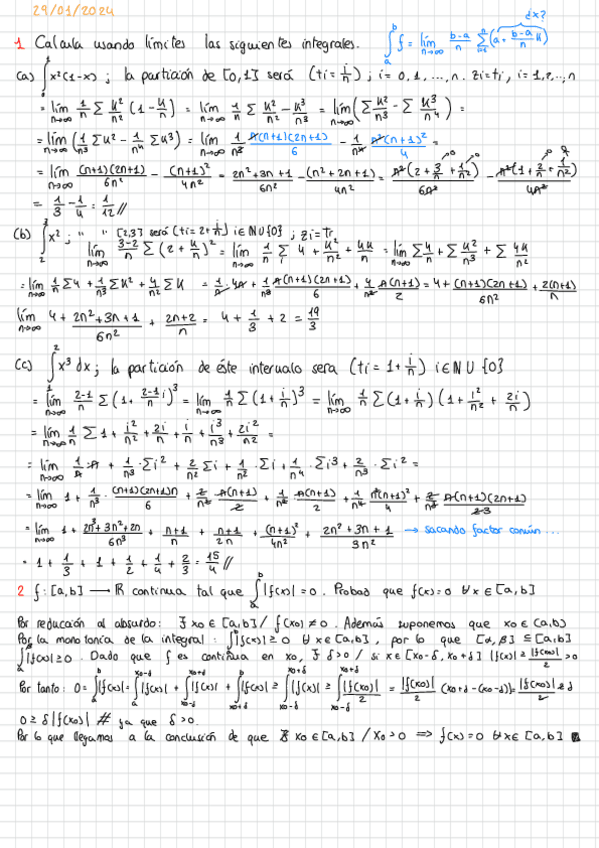 29/01/2024
¿x?
1 Calcula usando límites las siguientes integrales. ∫_a^b f = lím_{n→∞} (b-a)/n Σ_{i=1}^n (a + (b-a)/n k)
(a) ∫_0^1 x²(1-x) ; la partición de [0,1] será (ti = i/n) ; i = 0, 1, ..., n. zi = ti, i = 1, 2, .., n
= lím_{n→∞} 1/n Σ k²/n² (1 - k/n) = lím_{n→∞} 1/n Σ k²/n² - k³/n³ = lím_{n→∞} (Σ k²/n³ - Σ k³/n⁴) =
= lím_{n→∞} (1/n³ Σk² - 1/n⁴ Σk³) = lím_{n→∞} 1/n³ n(n+1)(2n+1)/6 - 1/n⁴ n²(n+1)²/4 =
= lím_{n→∞} (n+1)(2n+1)/6n² - (n+1)²/4n² = 2n²+3n+1/6n² - (n²+2n+1)/4n² = n²(2 + 3/n + 1/n²)/6n² - n²(1 + 2/n + 1/n²)/4n²
= 1/3 - 1/4 = 1/12 //
(b) ∫_2^3 x² ; " " [2,3] será (ti = 2 + i/n) i ∈ N∪{0} ; zi = ti
lím_{n→∞} (3-2)/n Σ (2 + k/n)² = lím_{n→∞} 1/n Σ 4 + k²/n² + 4k/n = lím_{n→∞} Σ 4/n + Σ k²/n³ + Σ 4k/n²
= lím_{n→∞} 1/n Σ4 + 1/n³ Σk² + 4/n² Σk = 1/n 4n + 1/n³ n(n+1)(2n+1)/6 + 4/n² n(n+1)/2 = 4 + (n+1)(2n+1)/6n² + 2(n+1)/n
lím_{n→∞} 4 + 2n²+3n+1/6n² + 2n+2/n = 4 + 1/3 + 2 = 19/3
(c) ∫_1^2 x³ dx ; la partición de éste intervalo sera (ti = 1 + i/n) i ∈ N∪{0}
= lím_{n→∞} (2-1)/n Σ (1 + (2-1)/n i)³ = lím_{n→∞} 1/n Σ (1 + i/n)³ = lím_{n→∞} 1/n Σ (1 + i/n) (1 + i²/n² + 2i/n)
= lím_{n→∞} 1/n Σ 1 + i²/n² + 2i/n + i/n + i³/n³ + 2i²/n² =
= lím_{n→∞} 1/n · n + 1/n³ · Σi² + 2/n² Σi + 1/n² · Σi + 1/n⁴ · Σi³ + 2/n³ · Σi² =
= lím_{n→∞} 1 + 1/n³ · (n+1)(2n+1)n/6 + 2/n² · n(n+1)/2 + 1/n² · n(n+1)/2 + 1/n⁴ n²(n+1)²/4 + 2/n³ n(n+1)(2n+1)/2·3
= lím_{n→∞} 1 + 2n³+3n²+2n/6n³ + n+1/n + n+1/2n + (n+1)²/4n² + 2n²+3n+1/3n² → sacando factor común...
= 1 + 1/3 + 1 + 1/2 + 1/4 + 2/3 = 15/4 //
2 f: [a,b] → R continua tal que ∫_a^b |f(x)| = 0. Probad que f(x) = 0 ∀x ∈ [a,b]
Por reducción al absurdo: ∃ x0 ∈ [a,b] / f(x0) ≠ 0. Además suponemos que x0 ∈ (a,b)
Por la monotonía de la integral: ∫|f(x)| ≥ 0 ∀x ∈ [a,b], por lo que [α,β] ⊆ [a,b]
∫|f(x)| ≥ 0. Dado que f es continua en x0, ∃ δ>0 / si x ∈ [x0-δ, x0+δ] |f(x)| ≥ |f(x0)|/2 > 0
Por tanto: 0 = ∫_a^b |f(x)| = ∫_a^{x0-δ} |f(x)| + ∫_{x0-δ}^{x0+δ} |f(x)| + ∫_{x0+δ}^b |f(x)| ≥ ∫_{x0-δ}^{x0+δ} |f(x)| ≥ ∫_{x0-δ}^{x0+δ} |f(x0)|/2 = |f(x0)|/2 (x0+δ-(x0-δ)) = |f(x0)|/2 2δ
0 ≥ δ|f(x0)| # ya que δ>0.
Por lo que llegamos a la conclusión de que ∄ x0 ∈ [a,b] / x0 > 0 ⟹ f(x) = 0 ∀x ∈ [a,b] ■